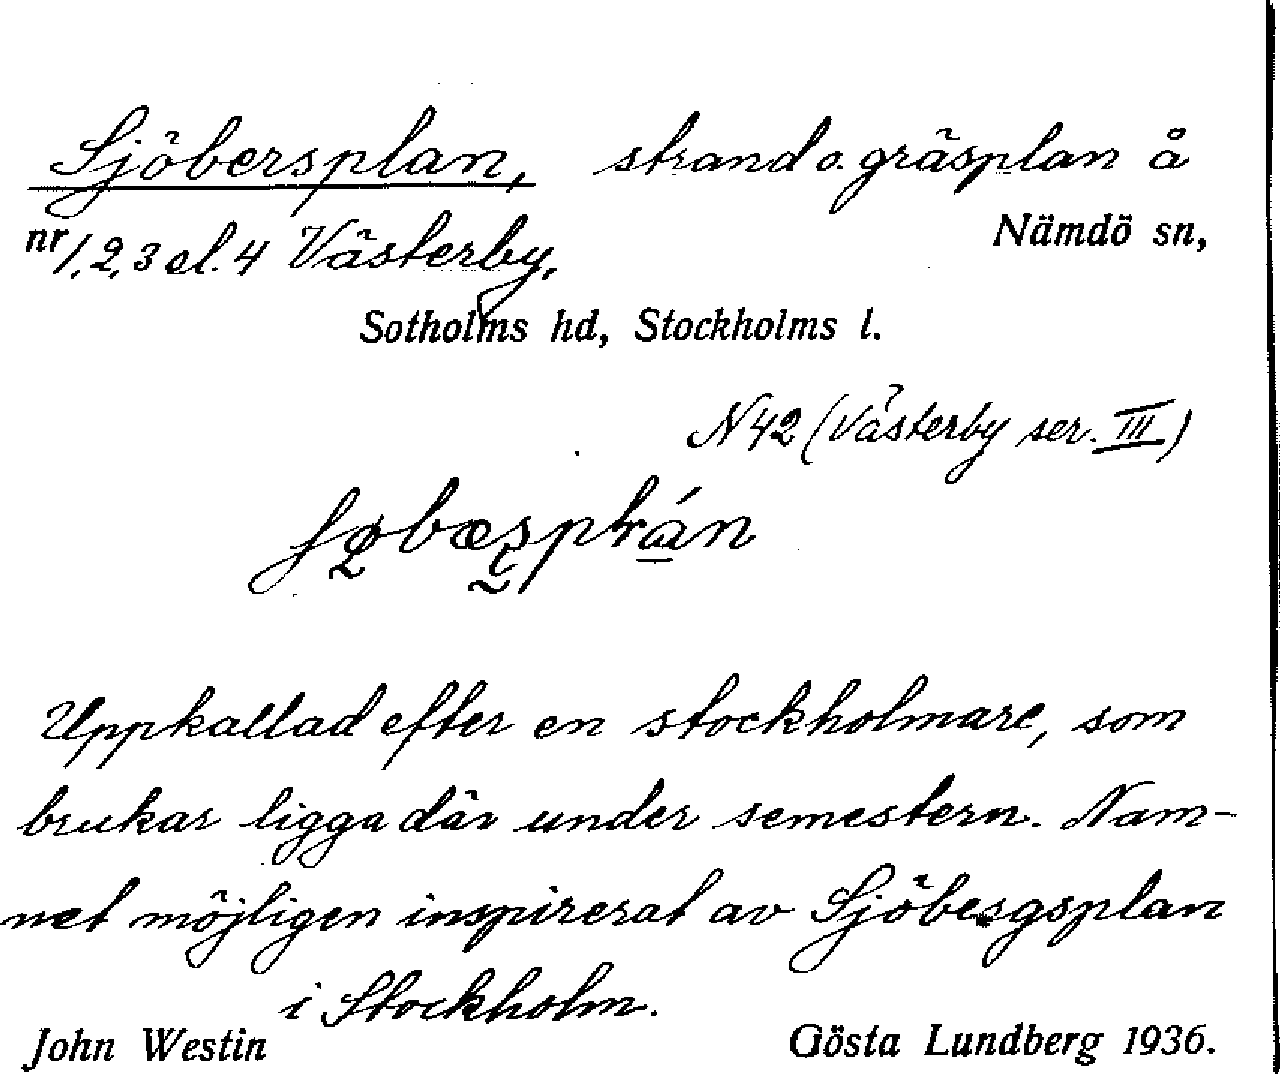 Sjöbersplan, strand o. gräsplan å
nr 1, 2, 3 el. 4 Västerby, Nämdö sn,
Sotholms hd, Stockholms l.
N 42 (Västerby ser. III)
Uppkallad efter en stockholmare, som
brukar ligga där under semestern. Nam-
net möjligen inspirerat av Sjöbergsplan
i Stockholm.
John Westin Gösta Lundberg 1936.